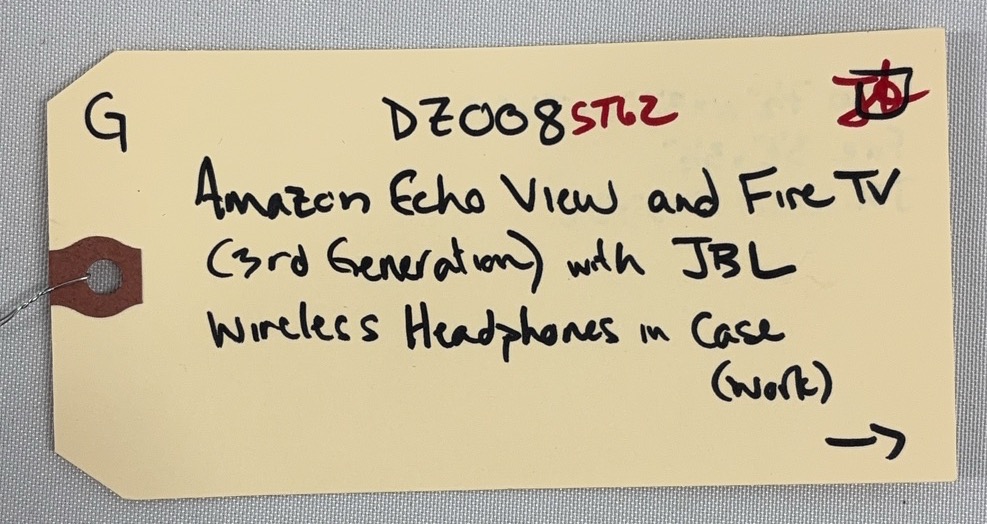 G
DZ008 ST62
Amazon Echo View and Fire TV
(3rd Generation) with JBL
Wireless Headphones in Case
(work)
→